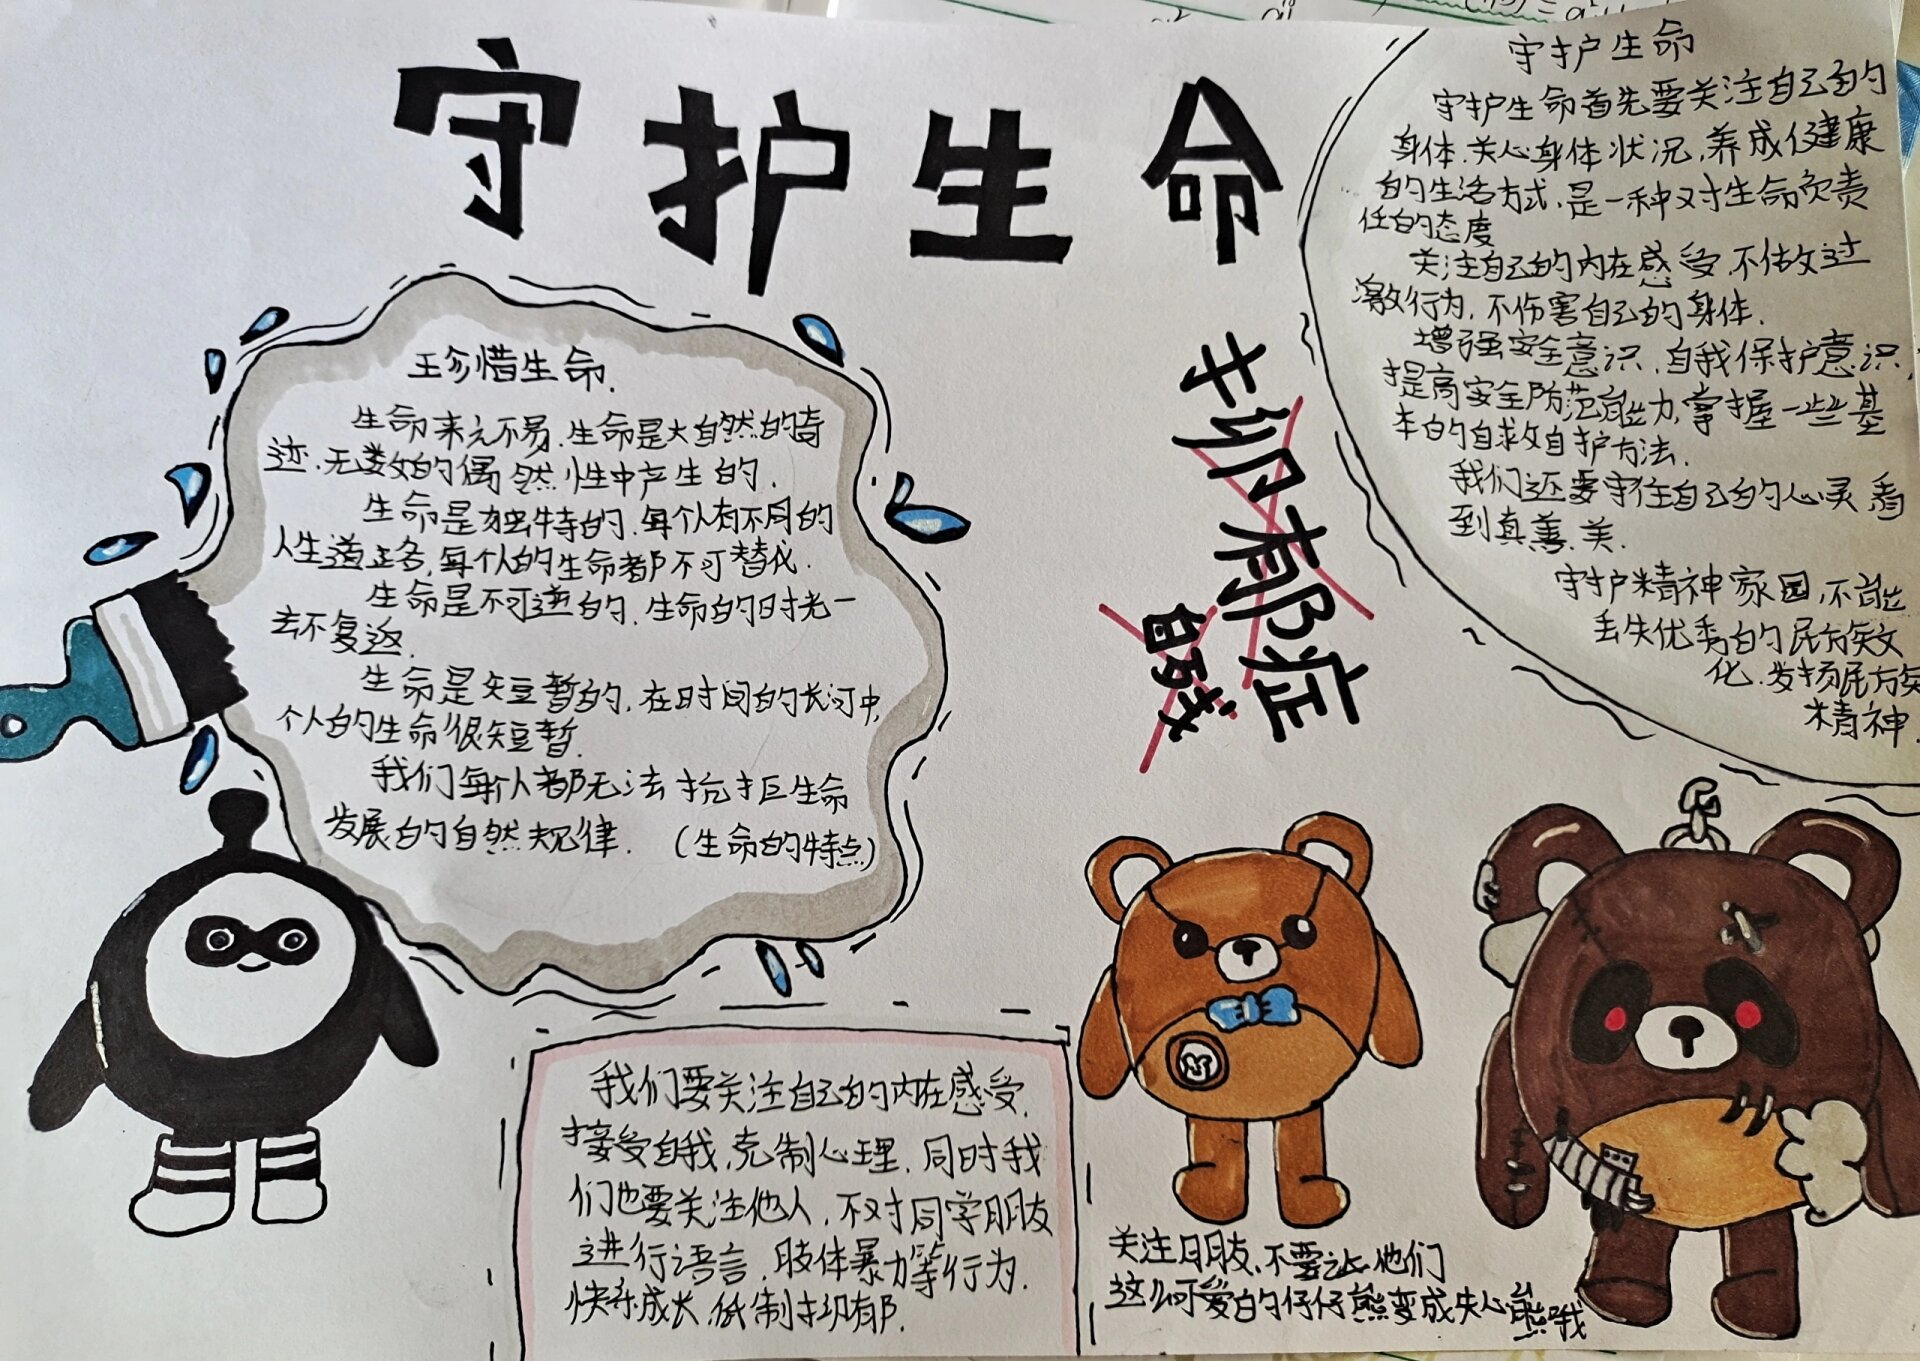 守护生命
珍惜生命.
生命来之不易.生命是大自然的奇
迹.无数的偶然性中产生的.
生命是独特的.每个人有不同的
人生道路,每个人的生命都不可替代.
生命是不可逆的.生命的时光一
去不复返.
生命是短暂的,在时间的长河中,
个人的生命很短暂.
我们每个人都无法抗拒生命
发展的自然规律. (生命的特点)
抑有郁症
自残
守护生命
守护生命首先要关注自己的
身体.关心身体状况,养成健康
的生活方式,是一种对生命负责
任的态度
关注自己的内在感受.不做过
激行为,不伤害自己的身体.
增强安全意识,自我保护意识,
提高安全防范能力,掌握一些基
本的自救自护方法.
我们还要守住自己的心灵看
到真善.美.
守护精神家园,不能
丢失优秀的民族文
化.发扬民族
精神.
我们要关注自己的内在感受.
接受自我,克制心理.同时我
们也要关注他人,不对同学朋友
进行语言,肢体暴力等行为.
快乐成长,低制抑郁.
关注朋友,不要让他们
这么可爱的仔仔熊变成失心熊哦